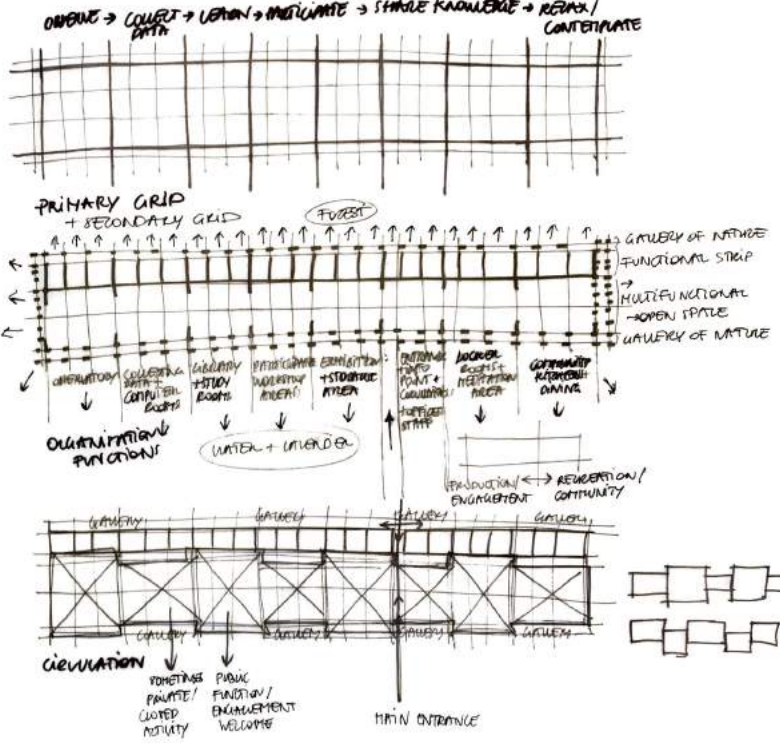 OBSERVE → COLLECT DATA → LEARN → PARTICIPATE → SHARE KNOWLEDGE → RELAX/
CONTEMPLATE
PRIMARY GRID
+ SECONDARY GRID
FOREST
GALLERY OF NATURE
FUNCTIONAL STRIP
→
MULTIFUNCTIONAL
→ OPEN SPACE
GALLERY OF NATURE
OBSERVATORY
COLLECTING
DATA +
COMPUTER
ROOMS
LIBRARY
+ STUDY
ROOMS
PARTICIPATE
WORKSHOP
AREAS
EXHIBITION
+ STORAGE
AREA
ENTRANCE
+ INFO
POINT +
+ OFFICES
STAFF
LOCKER
ROOMS +
MEDITATION
AREA
COMMUNITY
DINING
ORGANISATION/
FUNCTIONS
WATER + LAVENDER
PRODUCTION/
ENGAGEMENT
↔ RECREATION/
COMMUNITY
GALLERY
GALLERY
GALLERY
GALLERY
GALLERY
GALLERY
GALLERY
GALLERY
CIRCULATION
SOMETIMES
PRIVATE/
CLOSED
ACTIVITY
PUBLIC
FUNCTION/
ENGAGEMENT
WELCOME
MAIN ENTRANCE